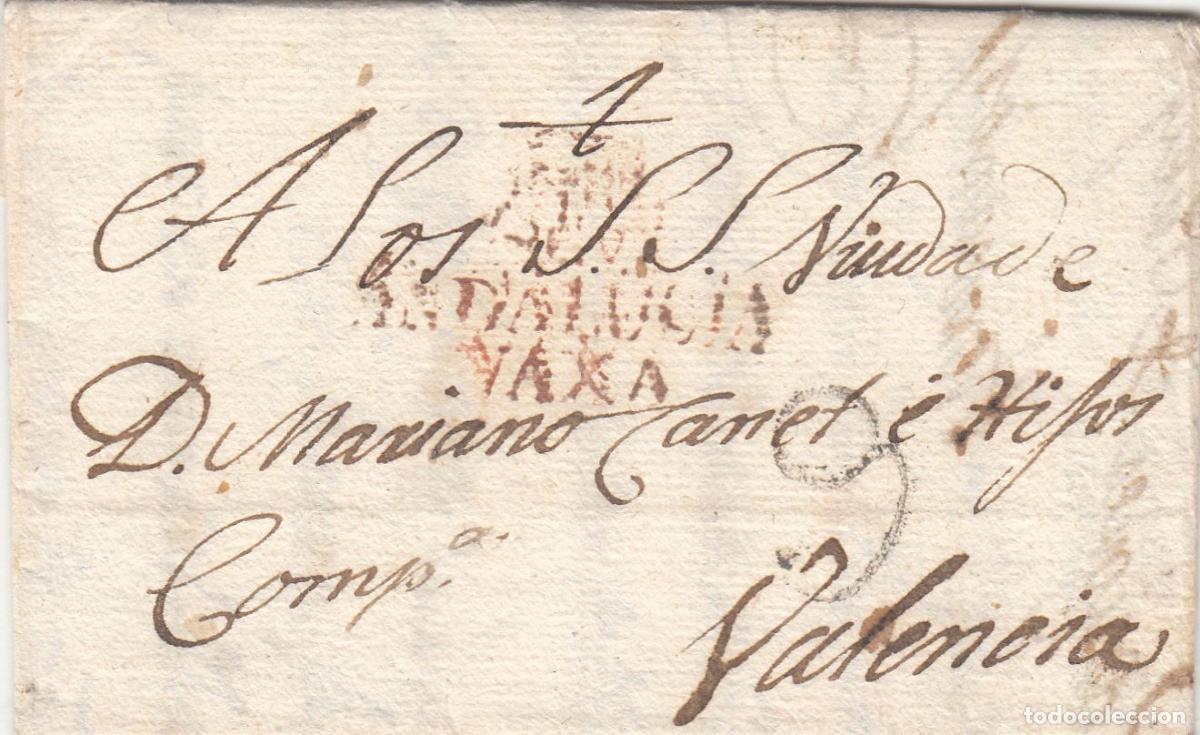 A los S.S. Viuda de
ANDALUCIA
VAXA
D. Mariano Canet é Hijos
9
Comp.ª
Valencia
todocoleccion